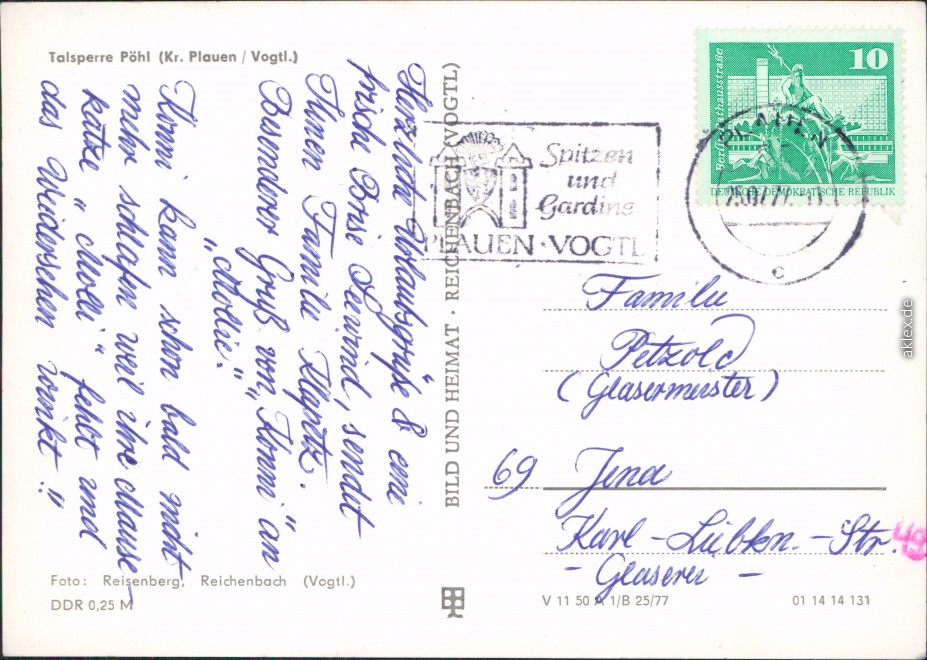 Talsperre Pöhl (Kr. Plauen / Vogtl.)
Herzliche Urlaubsgrüße & eine
frische Brise Seewind, sendet
Ihnen Familie
Besonderer Gruß von „Konni" an
„Mollie".
Konni kann schon bald nicht
mehr schlafen weil ihre Mause-
katze „Molli" fehlt und
das Wiedersehen winkt!"
Foto: Reisenberg, Reichenbach (Vogtl.)
DDR 0,25 M
BILD UND HEIMAT · REICHENBACH (VOGTL)
Spitzen
und
Gardine
PLAUEN · VOGTL
PLAUEN
25.07.77
c
10
Berlin, Rathausstraße
DEUTSCHE DEMOKRATISCHE REPUBLIK
Familie
Petzold
(Glasermeister)
69 Jena
Karl-Liebkn.-Str. 49
- Glaserei -
V 11 50 A 1/B 25/77
01 14 14 131
aklex.de